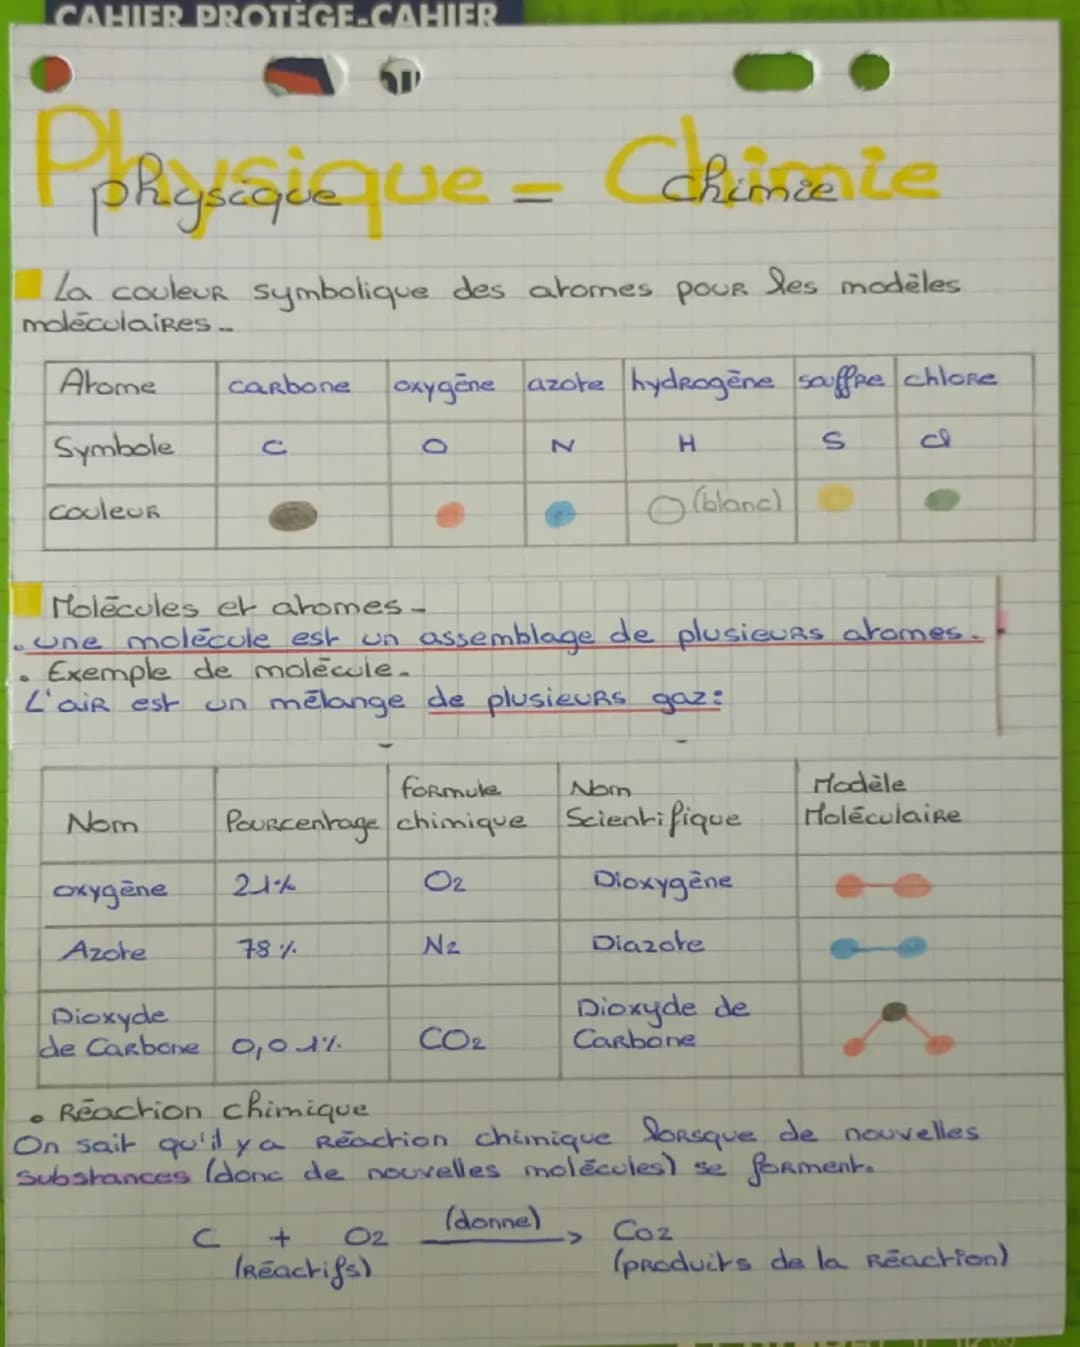 CAHIER PROTÈGE-CAHIER
Physique = Chimie
physique chimie
La couleur symbolique des atomes pour les modèles
moléculaires -
Atome carbone oxygène azote hydrogène souffre chlore
Symbole C O N H S Cl
couleur (blanc)
Molécules et atomes -
. une molécule est un assemblage de plusieurs atomes.
. Exemple de molécule.
L'air est un mélange de plusieurs gaz:
Nom Pourcentage formule chimique Nom Scientifique Modèle Moléculaire
oxygène 21% O2 Dioxygène
Azote 78% N2 Diazote
Dioxyde de Carbone 0,01% CO2 Dioxyde de Carbone
• Réaction chimique
On sait qu'il y a Réaction chimique lorsque de nouvelles
substances (donc de nouvelles molécules) se forment.
C + O2 (donne) → Co2
(réactifs) (produits de la Réaction)